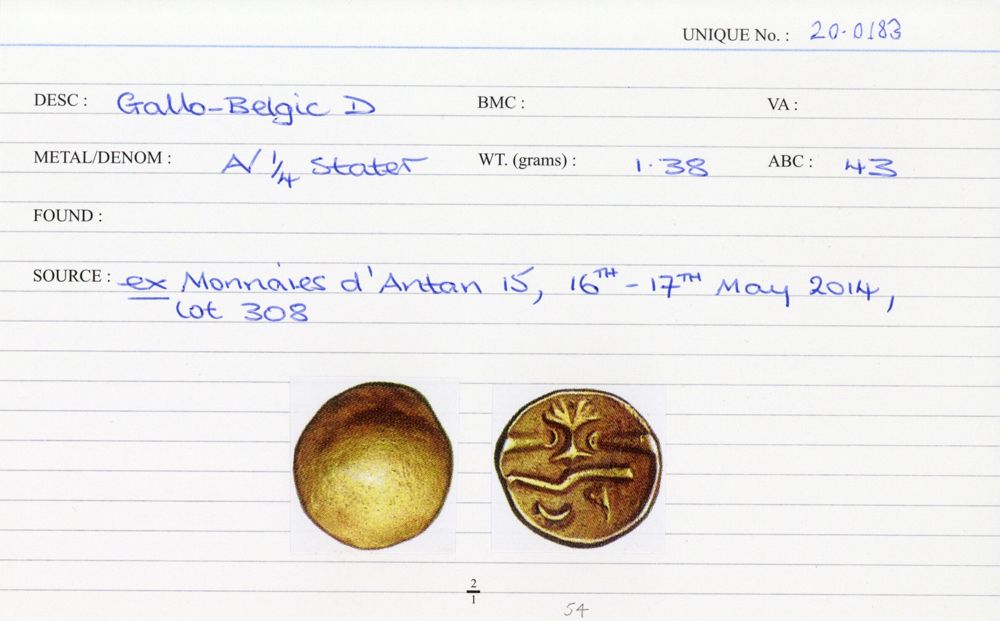 UNIQUE No. : 20-0183
DESC : Gallo-Belgic D BMC : VA :
METAL/DENOM : A/ 1/4 Stater WT. (grams) : 1.38 ABC : 43
FOUND :
SOURCE : ex Monnaies d'Antan 15, 16TH - 17TH May 2014,
Lot 308
2
1
54